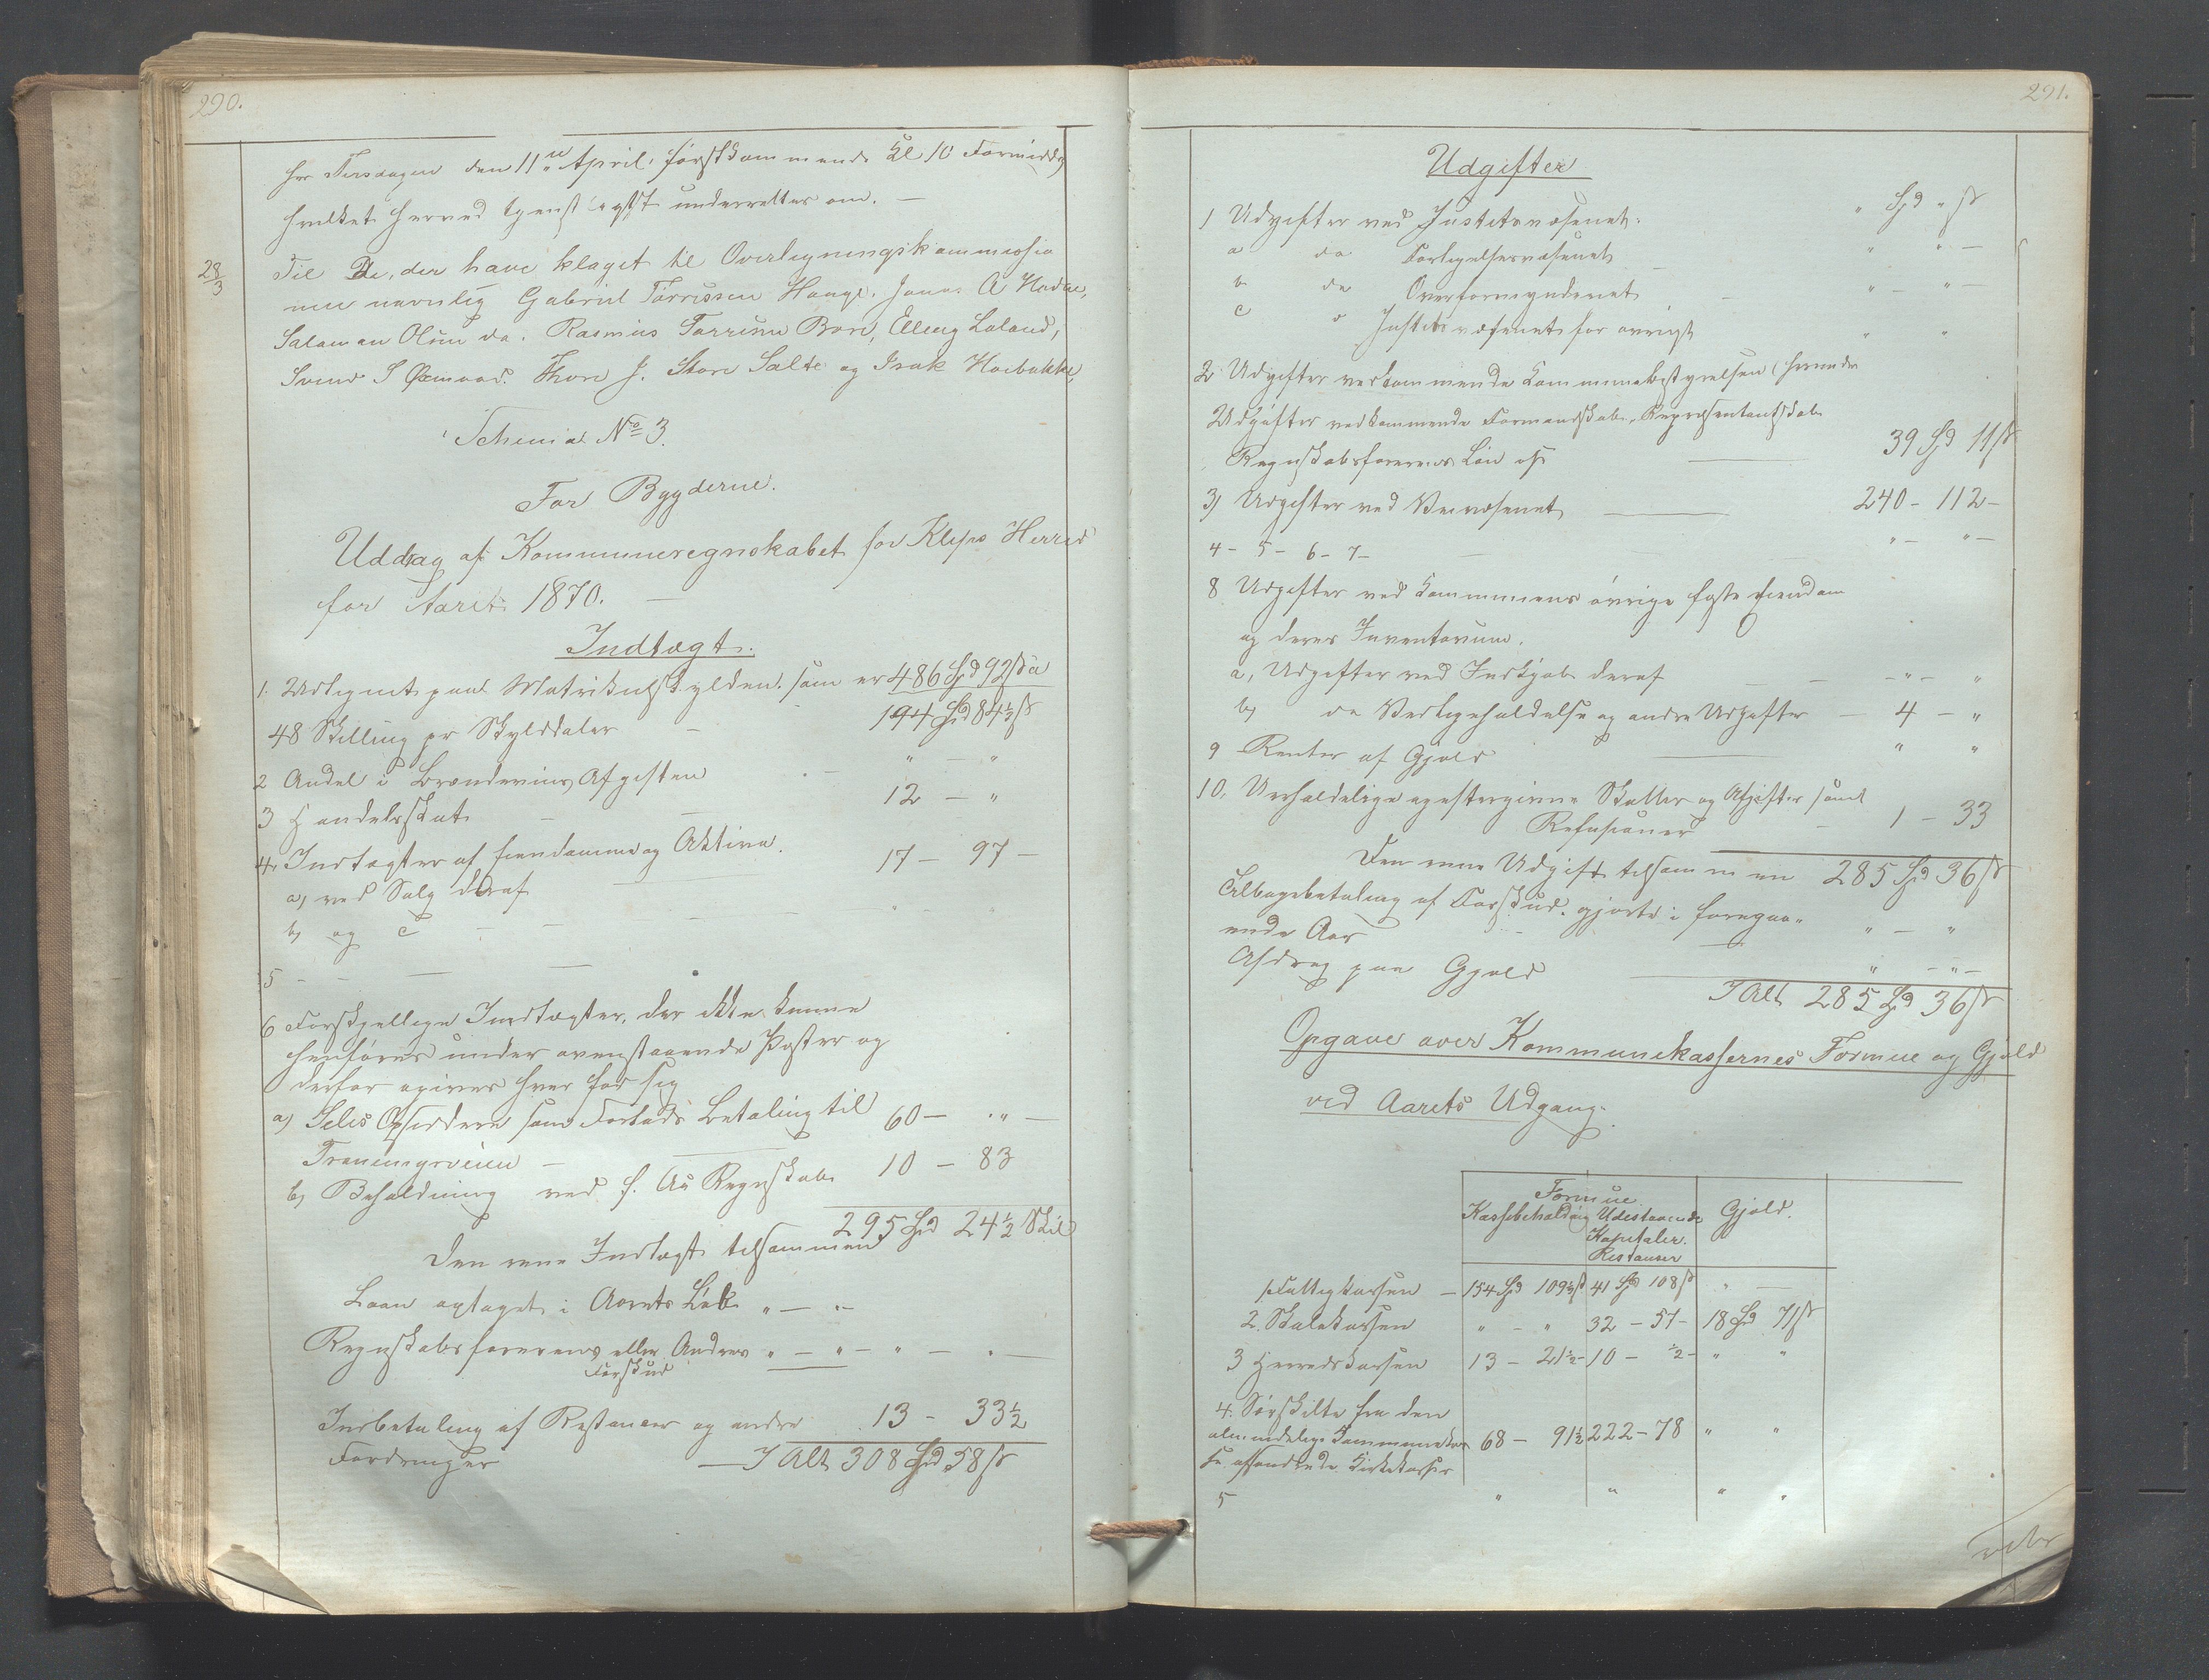 290.
her Tirsdagen den 11te April, førstkommende Kl 10 Formiddg
hvilket herved tjenstligst underrettes om. —
28/3 Til De, der have klaget til Overligningskommissio
nen navnlig Gabriel Tørrissen Hauge. Jonas A Hodne,
Salamon Olsen do. Rasmus Tørrissen Bore, Elling Laland,
Svend S Øxnevad. Thore J. Store Salte og Isak Hoibakke,
Schema No 3.
For Bygderne.
Uddrag af Kommuneregnskabet for Klep Herred
for Aaret 1870. —
Indtægt.
1. Udlignet paa Matrikulskylden, som er 486 Spd 92 ß a
48 Skilling pr Skylddaler — 194 Spd 84½ ß
2 Andel i Brændevins Afgiften — " — "
3 Handelsskat — 12 — "
4. Indtægter af Eiendomme og Aktiva.
a, ved Salg deraf — 17 — 97 —
b, og c — — — " "
5 — — — —
6 Forskjellige Indtægter, der ikke kunne
henføres under ovenstaaende Poster og
derfor opgives hver for sig
a) Seles Opsiddere som Forlods Betaling til 60 — " —
Traneungsveien —
b, Beholdning ved f. Aars Regnskab 10 — 83
Den rene Indtægt tilsammen 295 Spd 24½ Skil
Laan optaget i Aarets Løb " — " —
Regnskabsførerens eller Andres " — " — " —
Forskud
Indbetaling af Restancer og andre 13 — 33½
Fordringer — I Alt 308 Spd 58 ß
291.
Udgifter
1 Udgifter ved Justitsvæsenet: " Spd " ß
a do Forligelsesvæsenet — " " —
b do Overformynderiet — " — " —
c " Justitsvæsenet for øvrigt " "
2 Udgifter vedkommende Kommunebestyrelsen (herunder
Udgifter vedkommende Formandskab, Repræsentantskab
Regnskabsførerens Løn osv — 39 Spd 11 ß
3, Udgifter ved Veivæsenet — 240 — 112 —
4 — 5 — 6 — 7 — " — " —
8 Udgifter ved Kommunens øvrige faste Eiendom
og deres Inventarium.
a, Udgifter ved Indkjøb deraf — — " — "
b, do Vedligeholdelse og andre Udgifter — 4 — "
9 Renter af Gjæld — " "
10. Uerholdelige og eftergivne Skatter og Afgifter samt
Refusioner — 1 — 33
Den rene Udgift tilsammen 285 Spd 36 ß
Tilbagebetaling af Forskud, gjorte i foregaa-
ende Aar — " — "
Afdrag paa Gjæld — " — " —
I Alt 285 Spd 36 ß
Opgave over Kommunekassernes Formue og Gjæld
ved Aarets Udgang.
Formue
Kassebeholdng Udestaaende Gjæld.
Kapitaler.
Restancer
1 Fattigkassen — 154 Spd 109½ ß 41 Spd 108 ß " —
2. Skolekassen " — " 32 — 57 — 18 Spd 71 ß
3 Herredskassen 13 — 21½ — 10 — ½ — " "
4. Særskilte fra den
almindelige Kommunekas 68 — 91½ 222 — 78 " "
se afsondrede Kirkekasser
5 " " " "